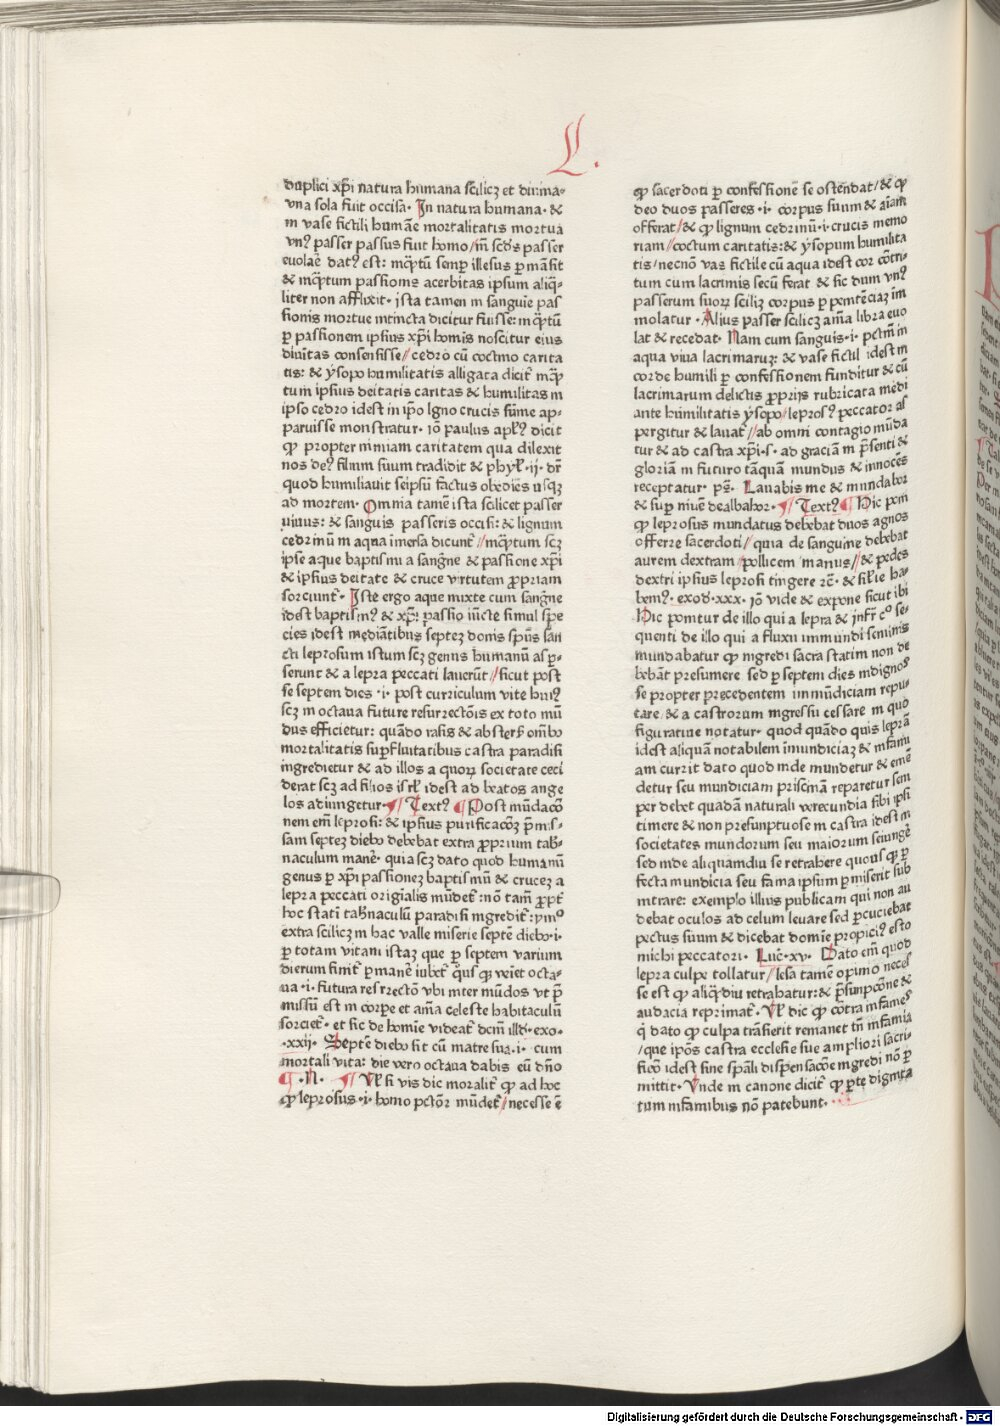 L.
duplici xp̄i natura humana scilicꝫ et diuina·
vna sola fuit occisa· In natura humana· &
in vase fictili humāe mortalitatis mortua
vnꝰ passer passus fuit homo/m̄ scd̓s passer
euolaē datꝰ est: inq̄ꝫtū semꝑ illesus ꝑmāsit
& inq̄ꝫtum passionis acerbitas ipsum aliq̄·
liter non afflixit· ista tamen in sanguīe pas
sionis mortue intincta dicitur fuisse: inq̄ꝫtū
ꝑ passionem ipsius xp̄i hominis noscitur eius
diuinitas consensisse//cedro cū coctino carita
tis: & ysopo humilitatis alligata dicit᷑ inq̄ꝫ
tum ipsius deitatis caritas & humilitas in
ip̄o cedro idest in ip̄o lgno crucis finne ap-
paruisse monstratur· iō paulus apl̓ꝰ dicit
ꝙ propter nimiam caritatem qua dilexit
nos deꝰ filium suum tradidit & phyl̓·ij· dr̄
quod humiliauit seipsū factus obediēs usqꝫ
ad mortem· Omnia tamē ista scilicet passer
uiuus: & sanguis passeris occisi: & lignum
cedrinū in aqua īmersa dicunt᷑//inq̄ꝫtum scꝫ
ipse aque baptismi a sangīne & passione xp̄i
& ipsius deitate & cruce virtutem ꝓpriam
sorciunt᷑· Iste ergo aque mixte cum sangīne
idest baptismꝰ & xp̄i passio iūcte simul spe
cies idest mediātibus septeꝫ donis sp̄us san
cti leprosum istum scꝫ genus humanū asper-
serunt & a lepra peccati lauerūt//sicut post
se septem dies ·i· post curriculum vite huiꝰ
scꝫ in octaua future resurrectōis ex toto mū
dus efficietur: quādo rasis & abstersꝭ om̄ibꝰ
mortalitatis suꝑfluitatibus castra paradisi
ingredietur & ad illos a quorꝫ societate ceci
derat scꝫ ad filios isrl̓ idest ad beatos ange
los adiungetur·¶ Textꝰ ¶Post mūdacō
nem em̄ leprosi: & ipsius purificacōꝫ p̄mis-
sam septeꝫ diebꝰ debebat extra ꝓprium tab̓-
naculum manē· quia scꝫ dato quod humanū
genus ꝑ xp̄i passioneꝫ baptismū & cruceꝫ a
lepra peccati originalis mūdet᷑: nō tam̄ ꝓpt̓
hoc statī tab̓naculū paradisi ingredit᷑: ymꝰ
extra scilicꝫ in hac valle miserie septē diebꝰ·i·
ꝑ totam vitam istaꝫ que ꝑ septem varium
dierum finit᷑ ꝑmanē iubet᷑ q̄usqꝫ veīet octa-
ua ·i· futura resrectō vbi inter mūdos vt p̄
missū est in corpe et aīma celeste habitaculū
sorciet᷑· et sic de homīe videat᷑ dcm̄ illd̓· exo·
·xxij· Septē diebꝰ sit cū matre sua·i· cum
mortali vita: die vero octaua dabis eū dn̄o
¶ ·N· ¶ Vl̓ si vis dic moralit̓ ꝙ ad hoc
ꝙ leprosus·i·homo pctōr mūdet᷑//necesse ē
ꝙ sacerdoti ꝑ confessionē se ostendat/& ꝙ
deo duos passeres ·i· corpus suum & aīam
offerat/& ꝙ lignum cedrinū·i·crucis memo
riam//coctum caritatis:& ysopum humilita
tis/necnō vas fictile cū aqua idest cor cōtri-
tum cum lacrimis secū ferat & sic dum vnꝰ
passerum suorꝫ scilicꝫ corpus ꝑ penitēciaꝫ im
molatur · Alius passer scilicꝫ aīma libra euo
lat & recedat· Nam cum sanguis·i· pctm̄ in
aqua viua lacrimarum: & vase fictil̓ idest in
corde humili ꝑ confessionem funditur & cū
lacrimarum delictis ꝓprijs rubricata medi
ante humilitatis ysopo/leprosꝰ peccator as
pergitur & lauat᷑//ab omni contagio mūda
tur & ad castra xp̄i·s· ad graciam in p̄senti &
gloriā in futuro tāquā mundus & innocēs
receptatur· ps̄· Lauabis me & mundabor
& suꝑ niuē dealbabor·¶ Textꝰ¶Hic poni
ꝙ leprosus mundatus debebat duos agnos
offerre sacerdoti/quia de sanguine debebat
aurem dextram/pollicem manus//& pedes
dextri ipsius leprosi tingere ꝛc̄· & sil̓ie ha-
bemꝰ· exod̓·xxx· iō vide & expone sicut ibi
Hic ponitur de illo qui a lepra & infrꝰ cꝰ se-
quenti de illo qui a fluxu immundi seminis
mundabatur ꝙ ingredi sacra statim non de
bebāt presumere sed ꝑ septem dies indignos
se propter precedentem immūdiciam repu-
tare· & a castrorum ingressu cessare in quo
figuratiue notatur· quod quādo quis leprā
idest aliquā notabilem īmundiciaꝫ & infami
am currit dato quod inde mundetur & emē
detur seu mundiciam priscinā reparetur sem
per debet quadā naturali verecundia sibi ipsi
timere & non presunptuose in castra idest in
societates mundorum seu maiorum seiungē
sed inde aliquamdiu se retrahere quousqꝫ ꝑ
fecta mundicia seu fama ipsum ꝑmiserit sub
intrare: exemplo illius publicani qui non au
debat oculos ad celum leuare sed ꝑcuciebat
pectus suum & dicebat domīe propiciꝰ esto
michi peccatori· Luc̄·xv· Dato em̄ quod
lepra culpe tollatur/iesa tamē opimo neces
se est ꝙ aliq̄ꝫdiu retrahatur:& p̄sunpcōne &
audacia reprimat᷑· Vl̓ dic ꝙ cōtra infames
q̓ dato ꝙ culpa trāsierit remanet tn̄ infamia
/que ipōs castra ecclesie sue ampliori sacri-
ficō idest sine spāli dispensacōe ingredi nō ꝑ
mittit· Vnde in canone dicit᷑ ꝙ ꝑte dignita
tum infamibus nō patebunt·